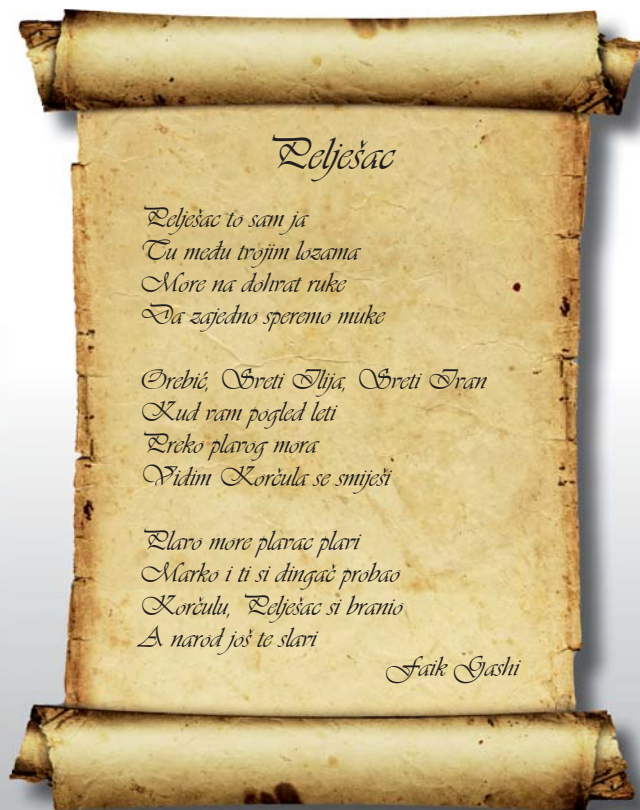 Pelješac
Pelješac to sam ja
Tu među tvojim lozama
More na dohvat ruke
Da zajedno speremo muke
Orebić, Sveti Ilija, Sveti Ivan
Kud vam pogled leti
Preko plavog mora
Vidim Korčula se smiješi
Plavo more plavac plavi
Marko i ti si dingač probao
Korčulu, Pelješac si branio
A narod još te slavi
Faik Gashi